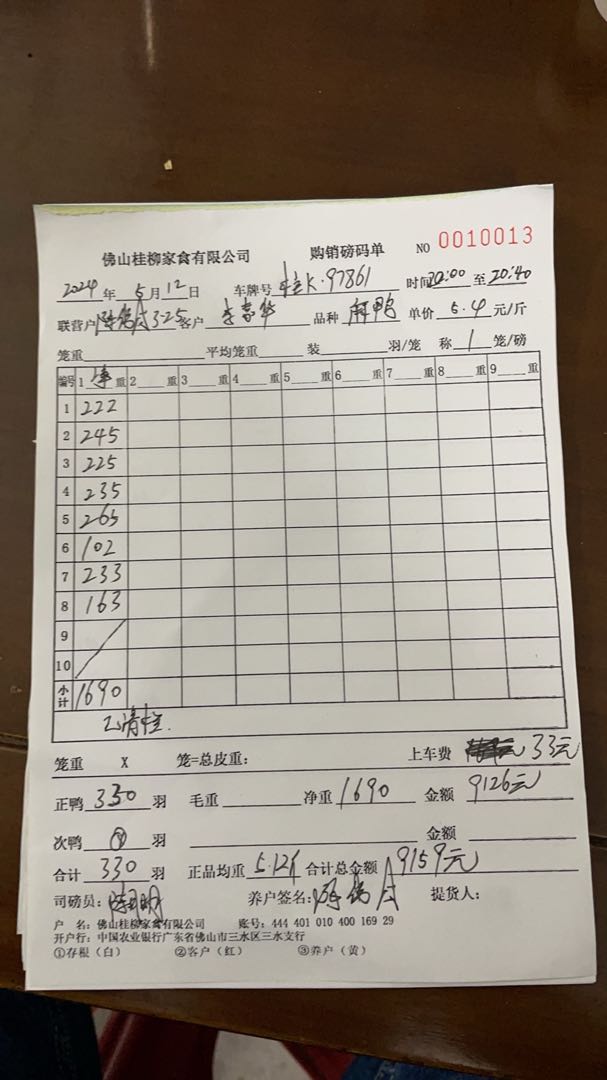 佛山桂柳家禽有限公司 购销磅码单 NO 0010013
2024 年 5 月 12 日 车牌号 桂K·97861 时间 20:00 至 20:40
联营户 325 客户 品种 麻鸭 单价 5.4 元/斤
笼重 平均笼重 装 羽/笼 称 1 笼/磅
编号 1 净 重 2 重 3 重 4 重 5 重 6 重 7 重 8 重 9 重
1 222
2 245
3 225
4 235
5 265
6 102
7 233
8 163
9
10
小计 1690
已清柱.
笼重 X 笼=总皮重: 上车费 33元
正鸭 330 羽 毛重 净重 1690 金额 9126元
次鸭 羽 金额
合计 330 羽 正品均重 5.121 合计总金额 9159元
司磅员: 养户签名: 提货人:
户 名: 佛山桂柳家禽有限公司 账号: 444 401 010 400 169 29
开户行: 中国农业银行广东省佛山市三水区三水支行
①存根（白） ②客户（红） ③养户（黄）